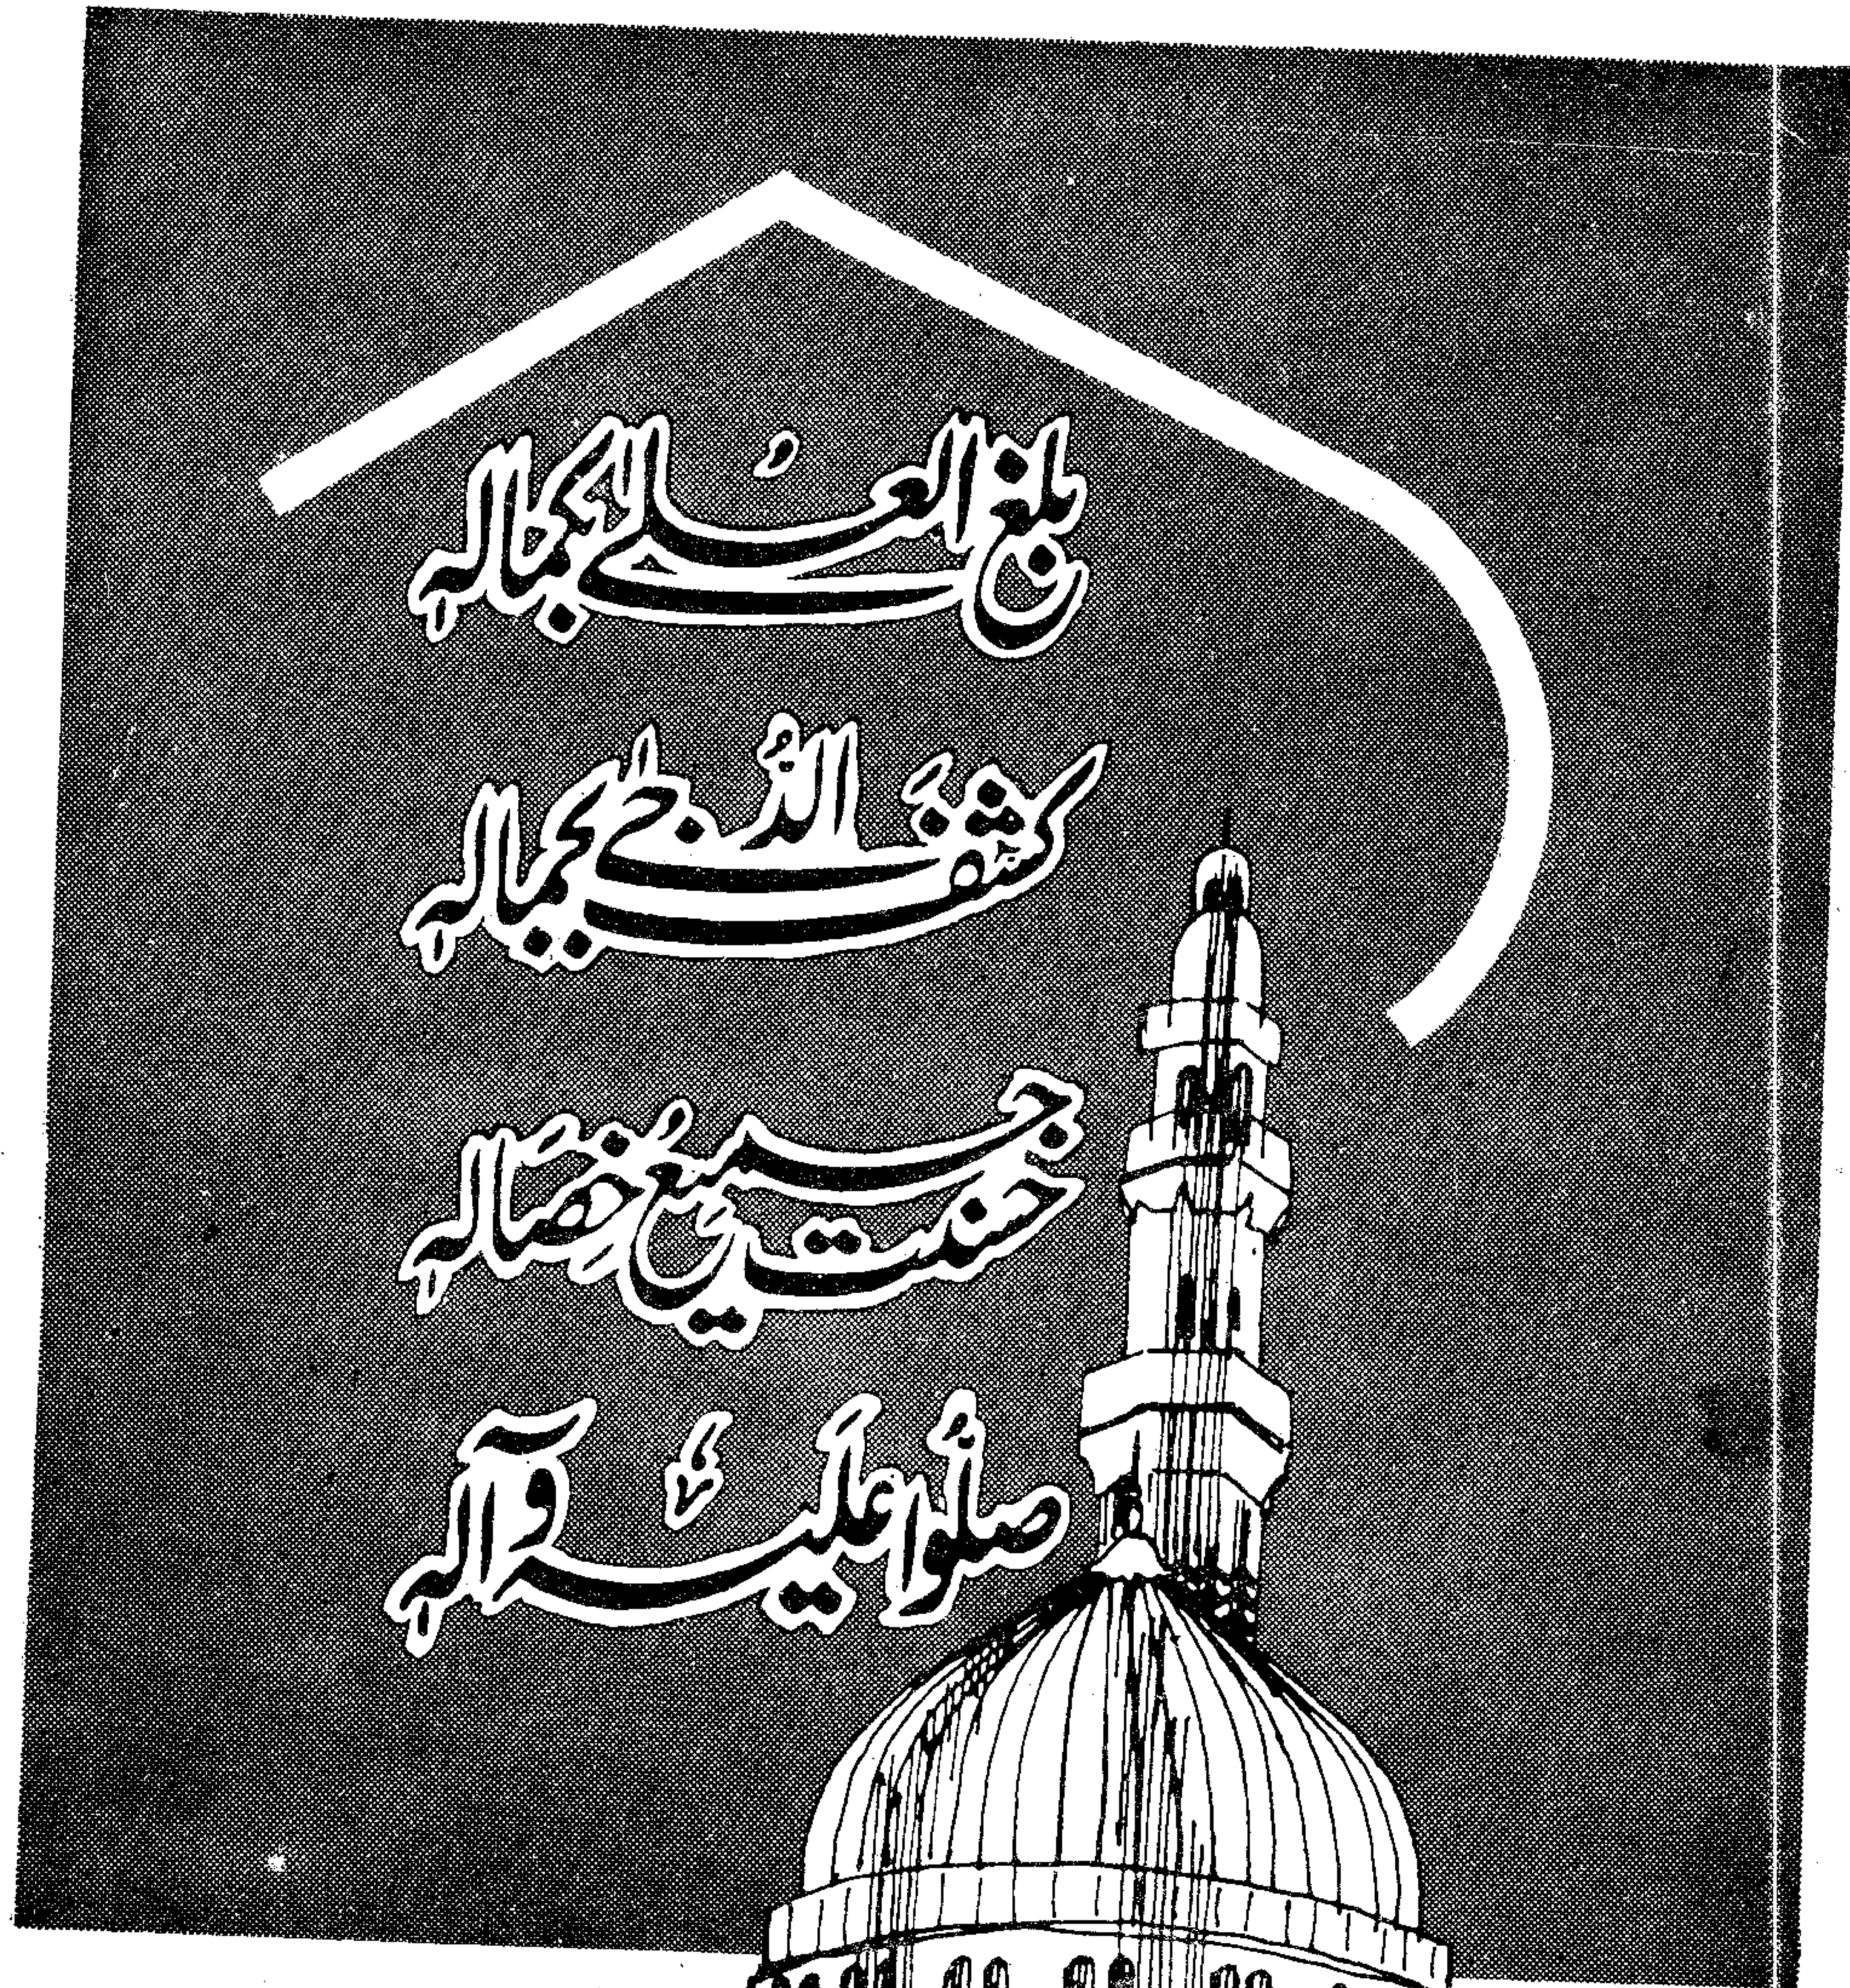 بلغ العُلےٰ بکمالہٖ
کشفَ الدُّجےٰ بجمالہٖ
حسنت جمیعُ خِصَالہٖ
صلُّوا عَلَیہِ وَآلہٖ